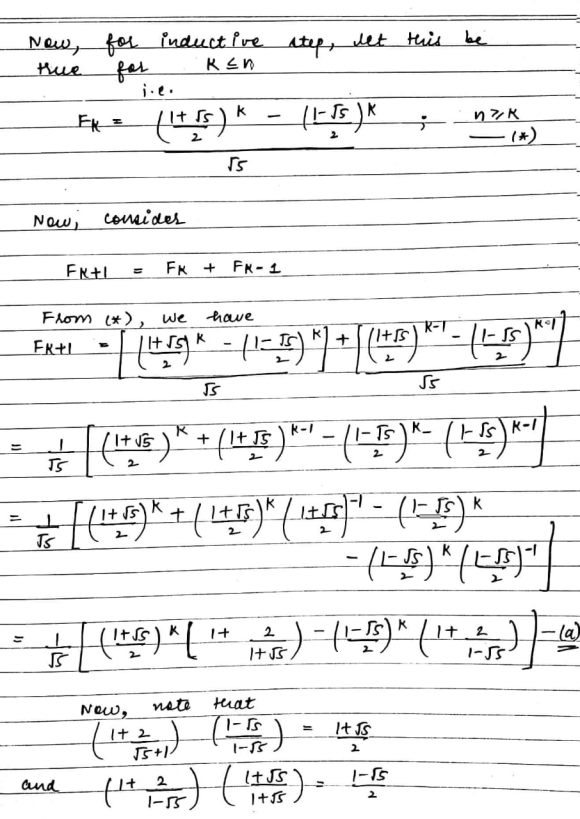 Now, for inductive step, let this be
true for K ≤ n
i.e.
FK = ((1+√5)/2)^K − ((1−√5)/2)^K ; n ≥ K
√5 —(*)
Now, consider
FK+1 = FK + FK-1
From (*), we have
FK+1 = [((1+√5)/2)^K − ((1−√5)/2)^K]/√5 + [((1+√5)/2)^K-1 − ((1−√5)/2)^K-1]/√5
= 1/√5 [((1+√5)/2)^K + ((1+√5)/2)^K-1 − ((1−√5)/2)^K − ((1−√5)/2)^K-1]
= 1/√5 [((1+√5)/2)^K + ((1+√5)/2)^K ((1+√5)/2)^-1 − ((1−√5)/2)^K
− ((1−√5)/2)^K ((1−√5)/2)^-1]
= 1/√5 [((1+√5)/2)^K [1 + 2/(1+√5)) − ((1−√5)/2)^K (1 + 2/(1−√5))] —(a)
Now, note that
(1 + 2/(√5+1)) ((1−√5)/(1−√5)) = (1+√5)/2
and (1 + 2/(1−√5)) ((1+√5)/(1+√5)) = (1−√5)/2